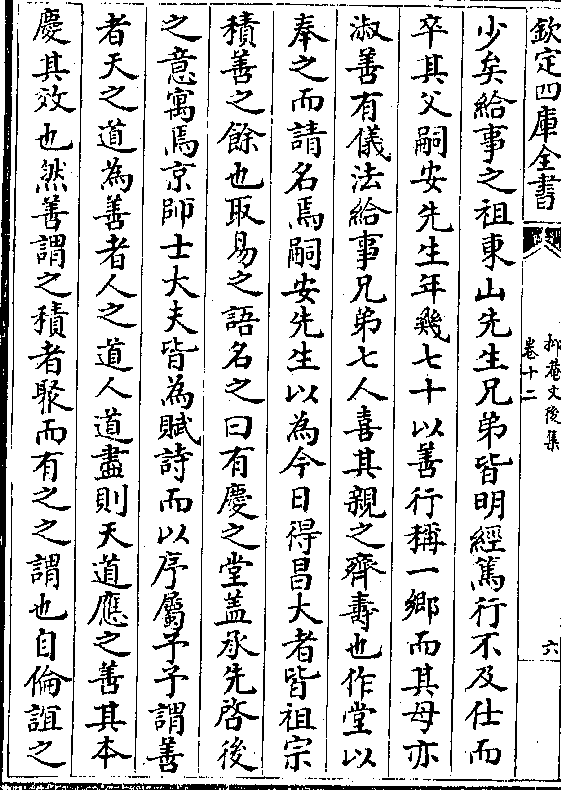 欽定四庫全書
抑菴文後集
卷十二
六
少矣給事之祖東山先生兄弟皆明經篤行不及仕而
卒其父嗣安先生年幾七十以善行稱一鄉而其母亦
淑善有儀法給事兄弟七人喜其親之齊壽也作堂以
奉之而請名焉嗣安先生以為今日得昌大者皆祖宗
積善之餘也取易之語名之曰有慶之堂蓋承先啓後
之意寓焉京師士大夫皆為賦詩而以序屬予予謂善
者天之道為善者人之道人道盡則天道應之善其本
慶其效也然善謂之積者聚而有之之謂也自倫誼之